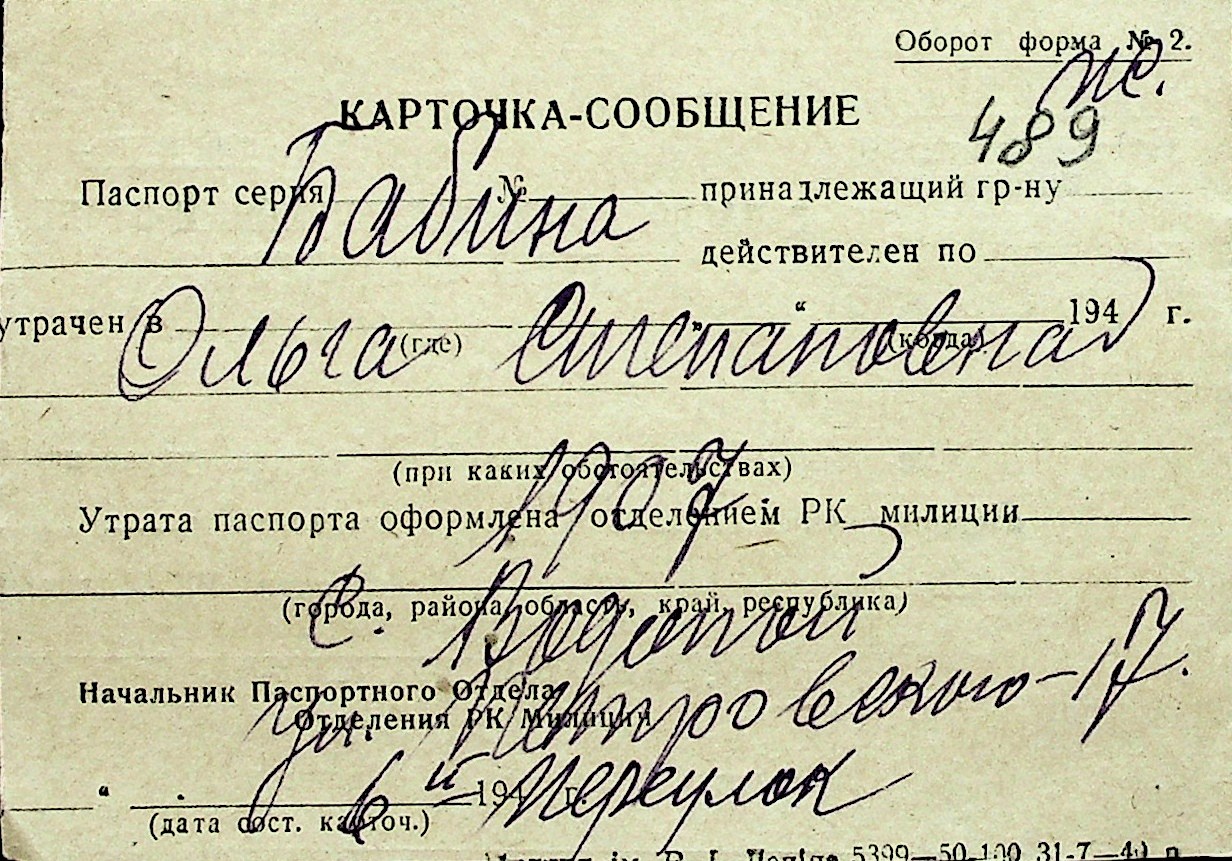 Оборот форма № 2.
КАРТОЧКА-СООБЩЕНИЕ
489
Паспорт серия № принадлежащий гр-ну
Бабина
действителен по
утрачен в " " 194 г.
Ольга Степановна
(где) (когда)
(при каких обстоятельствах)
1907
Утрата паспорта оформлена отделением РК милиции
(города, района, область, край, республика)
с. Водопой
Начальник Паспортного Отдела
Отделения РК Милиции
ул. Петровского-17.
6й переулок
" 194 г.
(дата сост. карточ.)
5399—50.100 31-7—40 п